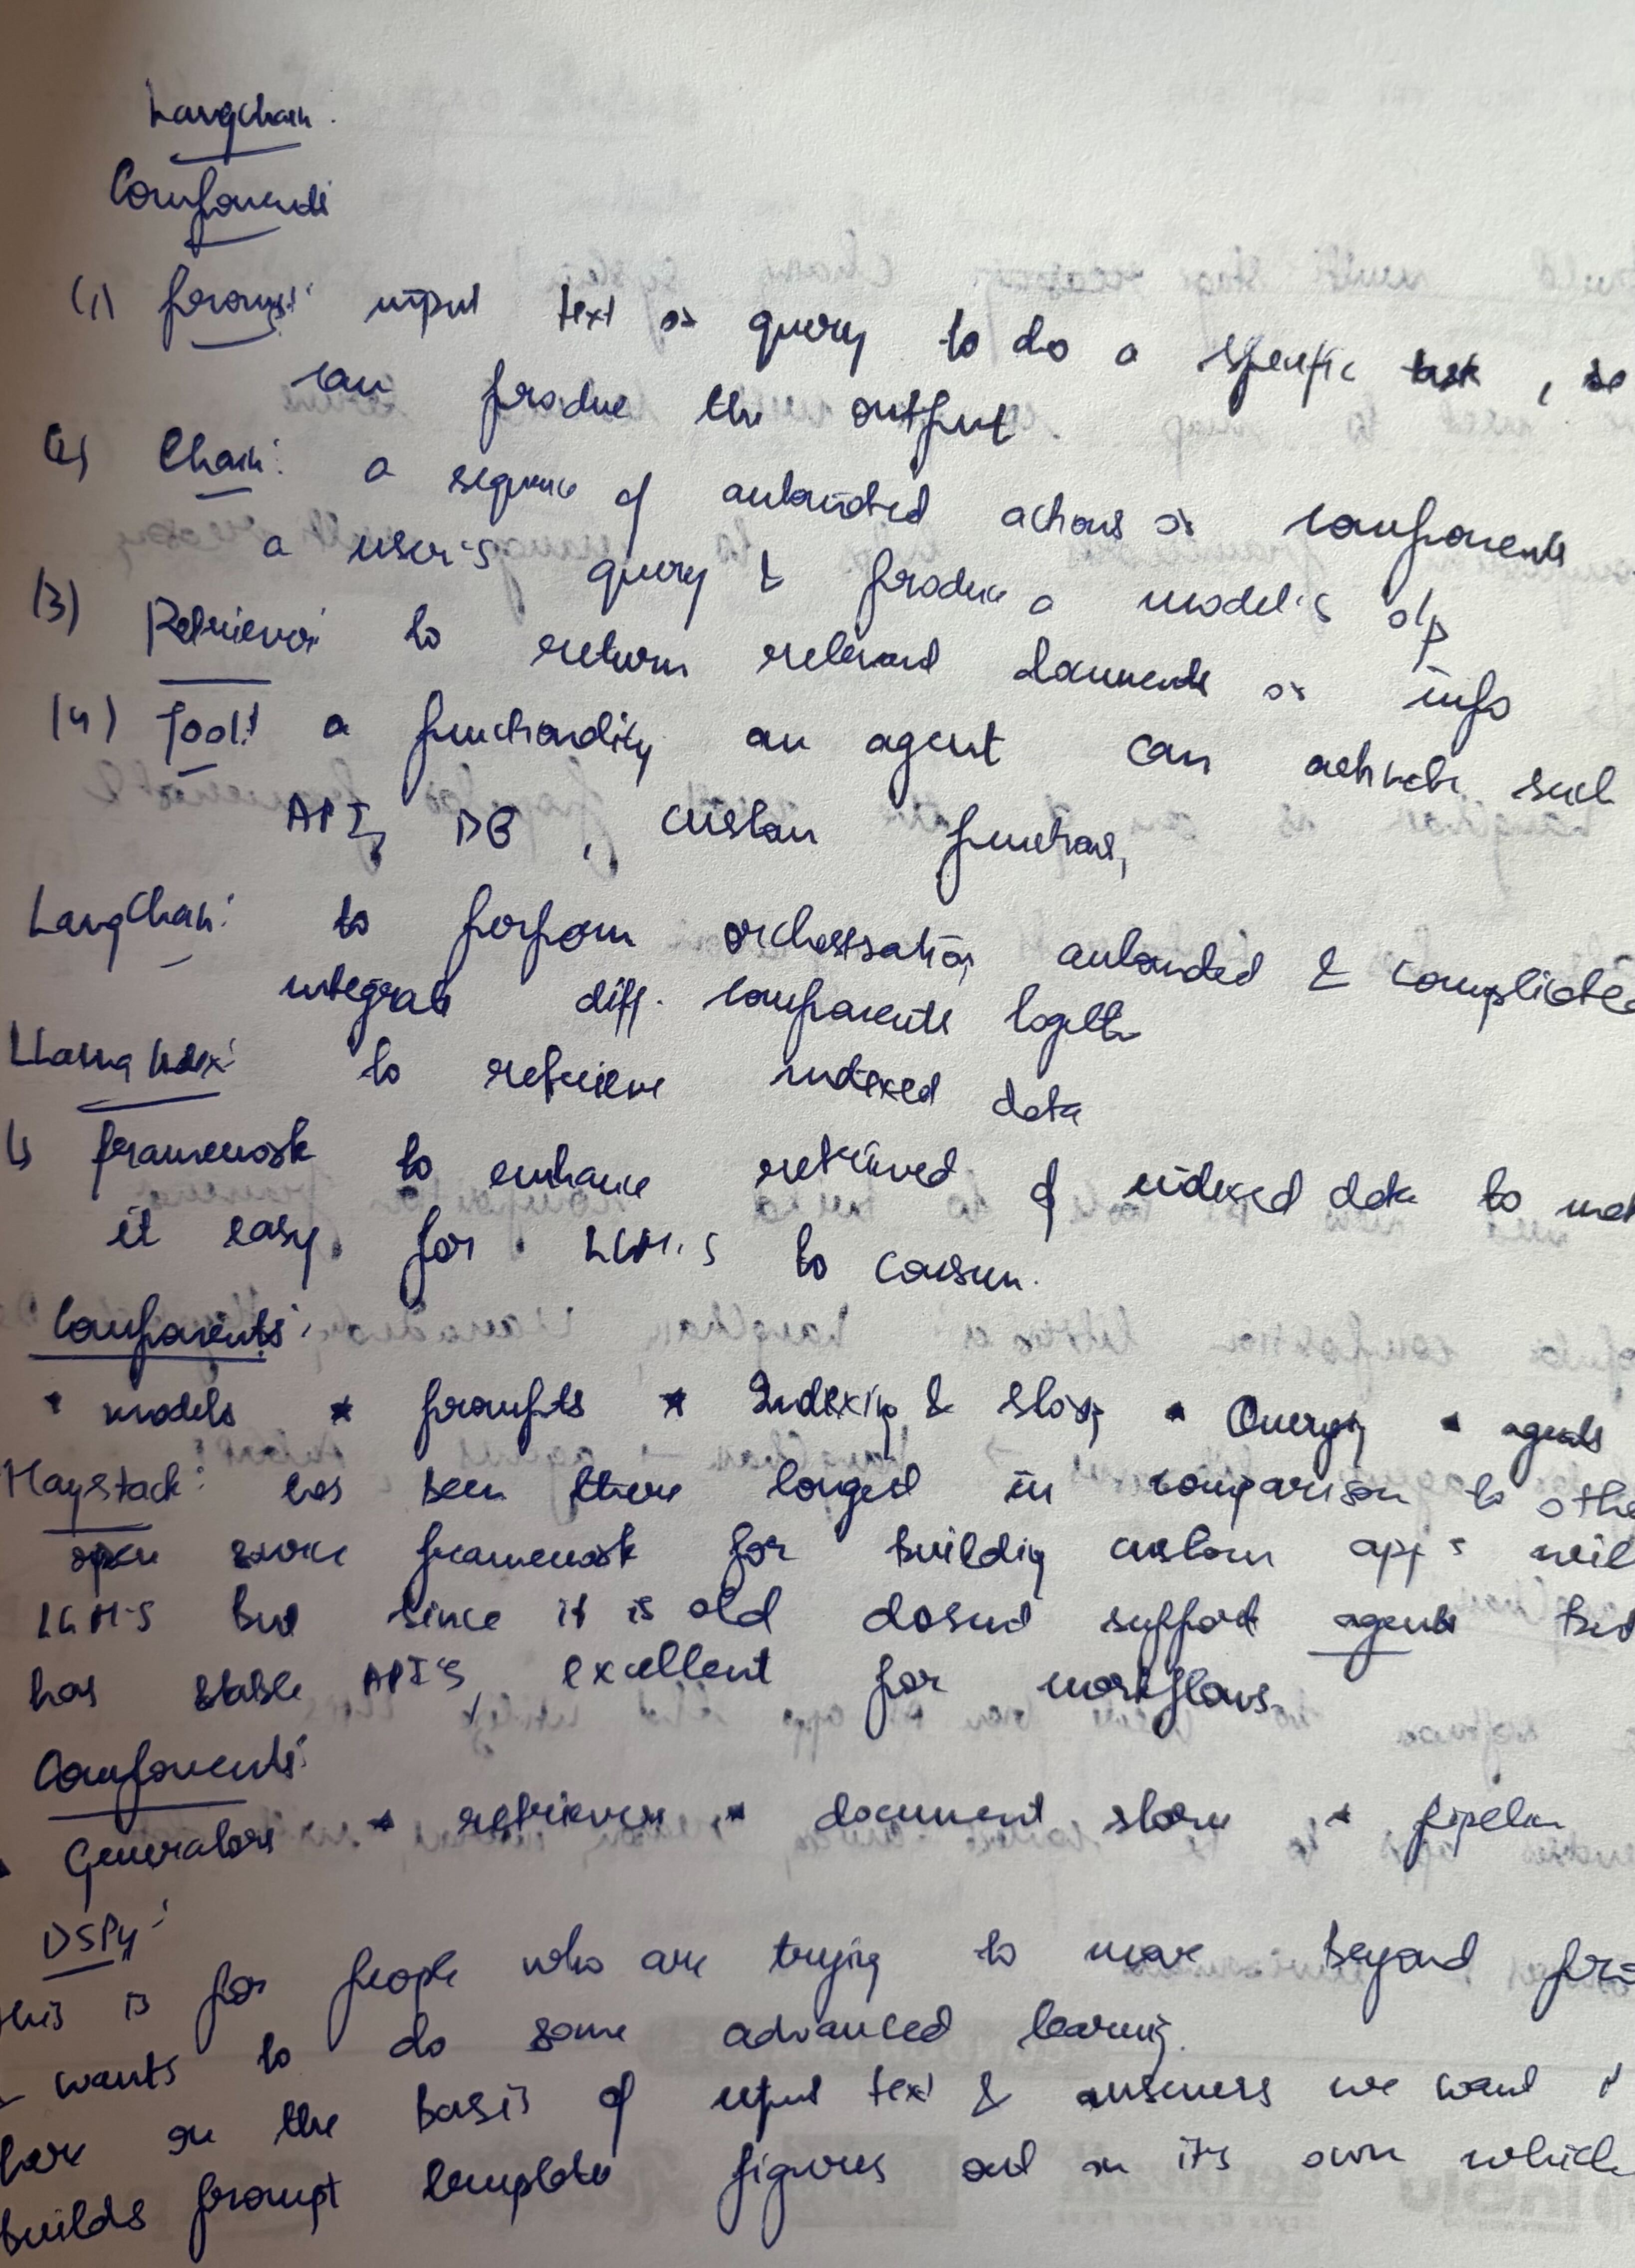 Langchain.
Components
(1) Prompt: input text or query to do a specific task, so
can produce the output
(2) Chain: a sequence of automated actions or components
a user's query & produce a model's o/p
(3) Retriever: to return relevant documents or info
(4) Tool: a functionality an agent can activate such
API, DB, custom functions,
LangChain: to perform orchestration, automated & complicated
integrate diff. components together
LLama Index: to retrieve indexed data
↳ framework to enhance retrieved of indexed data to
it easy for LLM's to consum.
Components:
* models * prompts * Indexing & * Querying * agents
Haystack: has been there longest in comparison to othe
open source framework for building custom app's
LLM's but since it is old dosent support agents but
has stable API's, excellent for workflows.
Components:
* Generators * retrievers, * document store, *
DSPy:
this is for people who are trying to move beyond pro
wants to do some advanced learning.
here on the basis of input text & answers we want
builds prompt template figures out on it's own which